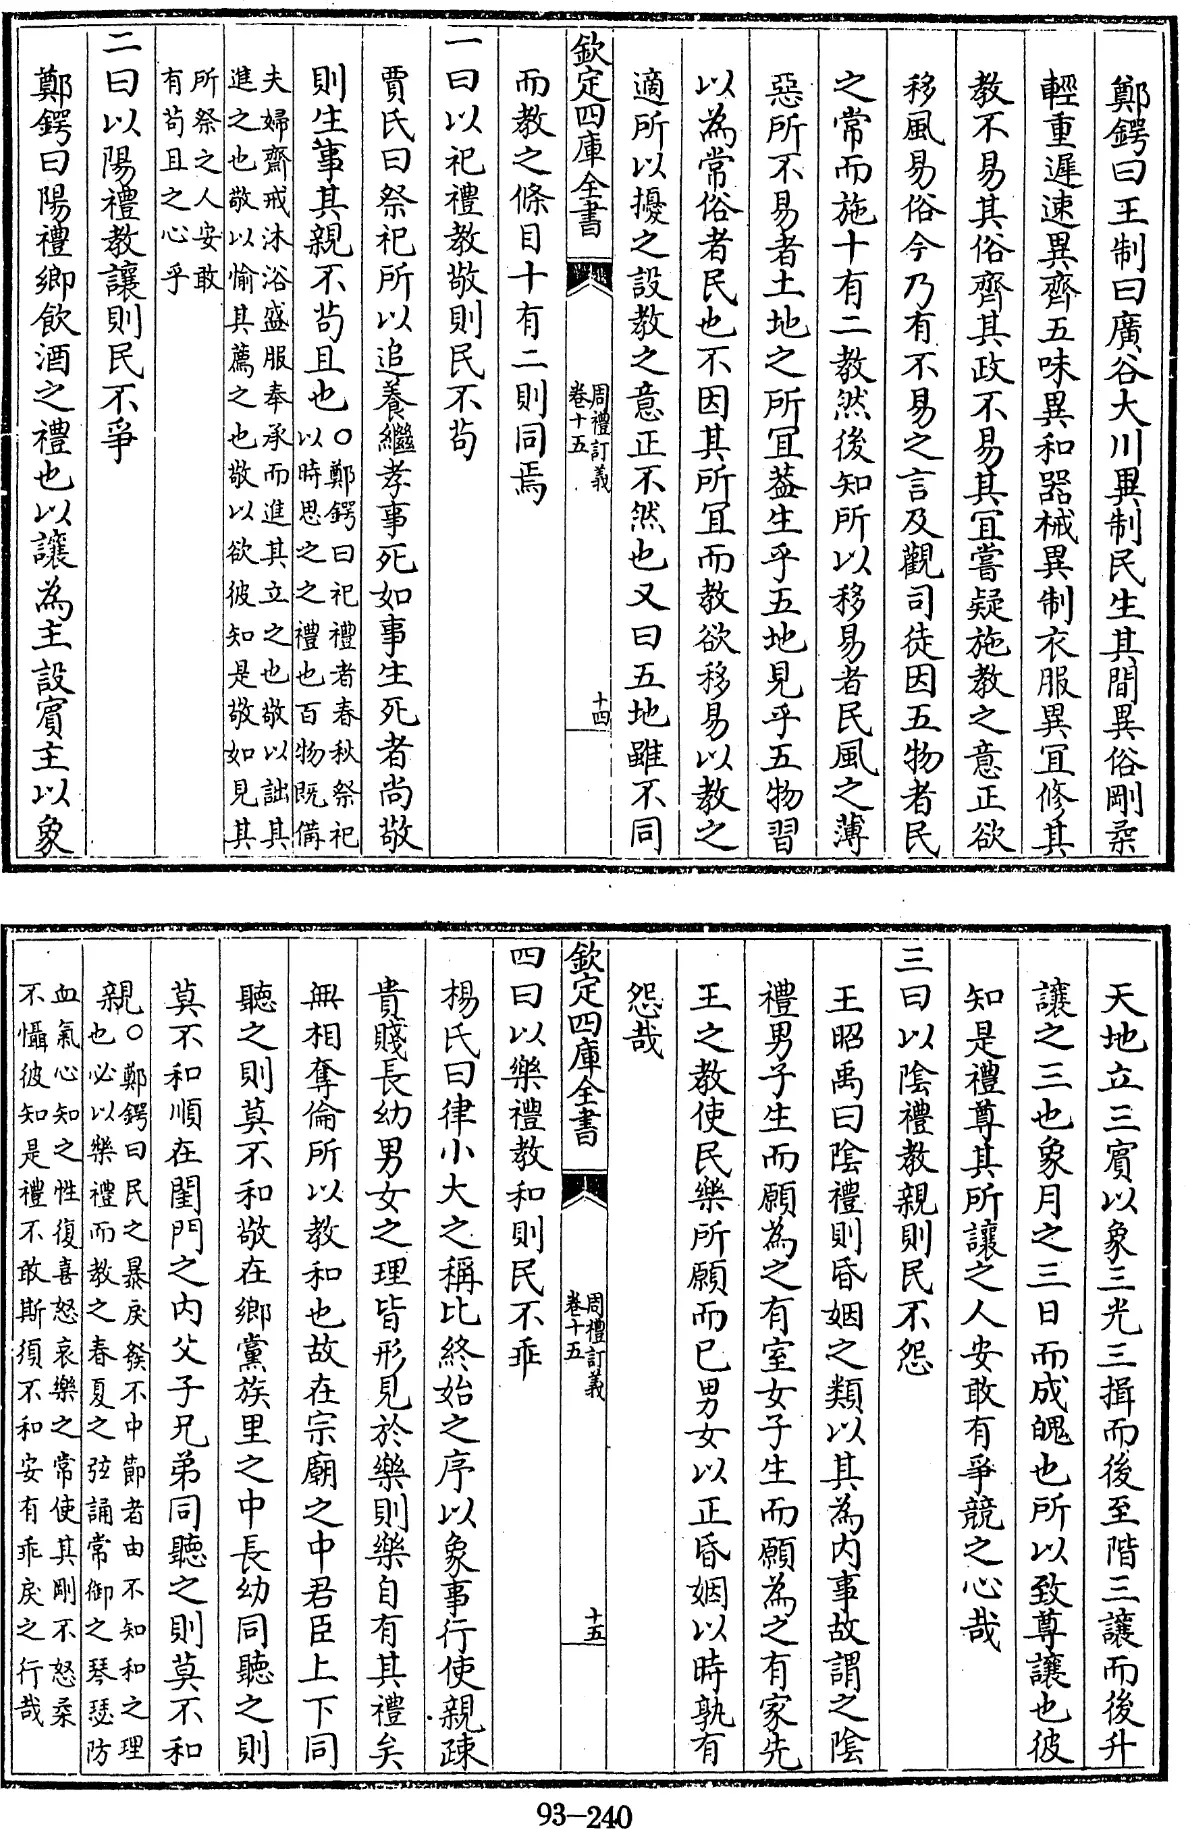 鄭鍔曰王制曰廣谷大川異制民生其間異俗剛柔
輕重遲速異齊五味異和器械異制衣服異宜修其
教不易其俗齊其政不易其宜嘗疑施教之意正欲
移風易俗今乃有不易之言及觀司徒因五物者民
之常而施十有二教然後知所以移易者民風之薄
惡所不易者土地之所宜葢生乎五地見乎五物習
以為常俗者民也不因其所宜而教欲移易以教之
適所以擾之設教之意正不然也又曰五地雖不同
欽定四庫全書
周禮訂義
卷十五
十四
而教之條目十有二則同焉
一曰以祀禮教敬則民不茍
賈氏曰祭祀所以追養繼孝事死如事生死者尚敬
則生事其親不茍且也○鄭鍔曰祀禮者春秋祭祀
以時思之之禮也百物既備
夫婦齋戒沐浴盛服奉承而進其立之也敬以詘其
進之也敬以愉其薦之也敬以欲彼知是敬如見其
所祭之人安敢
有茍且之心乎
二曰以陽禮教讓則民不爭
鄭鍔曰陽禮鄉飲酒之禮也以讓為主設賓主以象
天地立三賓以象三光三揖而後至階三讓而後升
讓之三也象月之三日而成魄也所以致尊讓也彼
知是禮尊其所讓之人安敢有爭競之心哉
三曰以陰禮教親則民不怨
王昭禹曰陰禮則昏姻之類以其為内事故謂之陰
禮男子生而願為之有室女子生而願為之有家先
王之教使民樂所願而已男女以正昏姻以時孰有
怨哉
欽定四庫全書
周禮訂義
卷十五
十五
四曰以樂禮教和則民不乖
楊氏曰律小大之稱比終始之序以象事行使親疎
貴賤長幼男女之理皆形見於樂則樂自有其禮矣
無相奪倫所以教和也故在宗廟之中君臣上下同
聽之則莫不和敬在鄉黨族里之中長幼同聽之則
莫不和順在閨門之内父子兄弟同聽之則莫不和
親○鄭鍔曰民之暴戾發不中節者由不知和之理
也必以樂禮而教之春夏之弦誦常御之琴瑟防
血氣心知之性復喜怒哀樂之常使其剛不怒柔
不懾彼知是禮不敢斯須不和安有乖戾之行哉
93—240